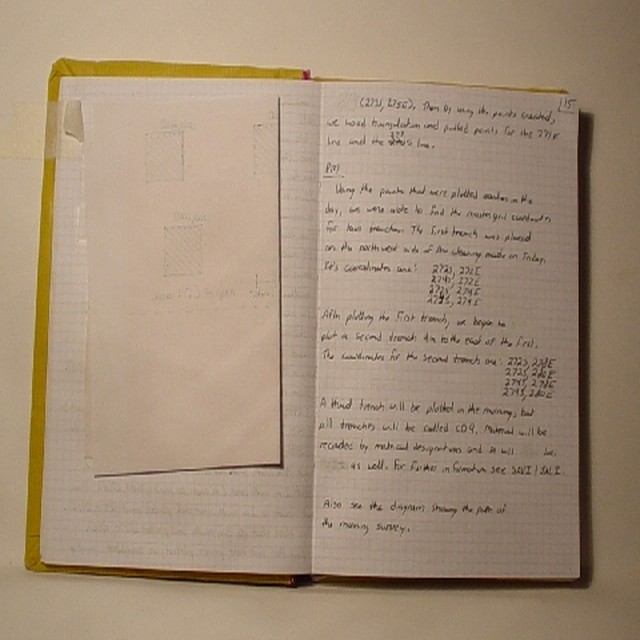 15
(272S, 275E). Then by using the points created,
we used triangulation and plotted points for the 279E
line and the line.
PM)
Using the points that were plotted earlier in the
day, we were able to find the master grid coordinates
for two trenches. The first trench was placed
on the northwest side of the clearing made on Friday.
It's coordinates are: 272S, 272E
274S, 272E
272S, 274E
274S, 274E
After plotting the first trench, we began to
plot a second trench 4m to the east of the first.
The coordinates for the second trench are: 272S, 278E
272S, 280E
274S, 278E
274S, 280E
A third trench will be plotted in the morning, but
all trenches will be called CD9. Material will be
recorded by material designations and it will be
as well. For further information see
Also see the diagram showing the path of
the morning survey.